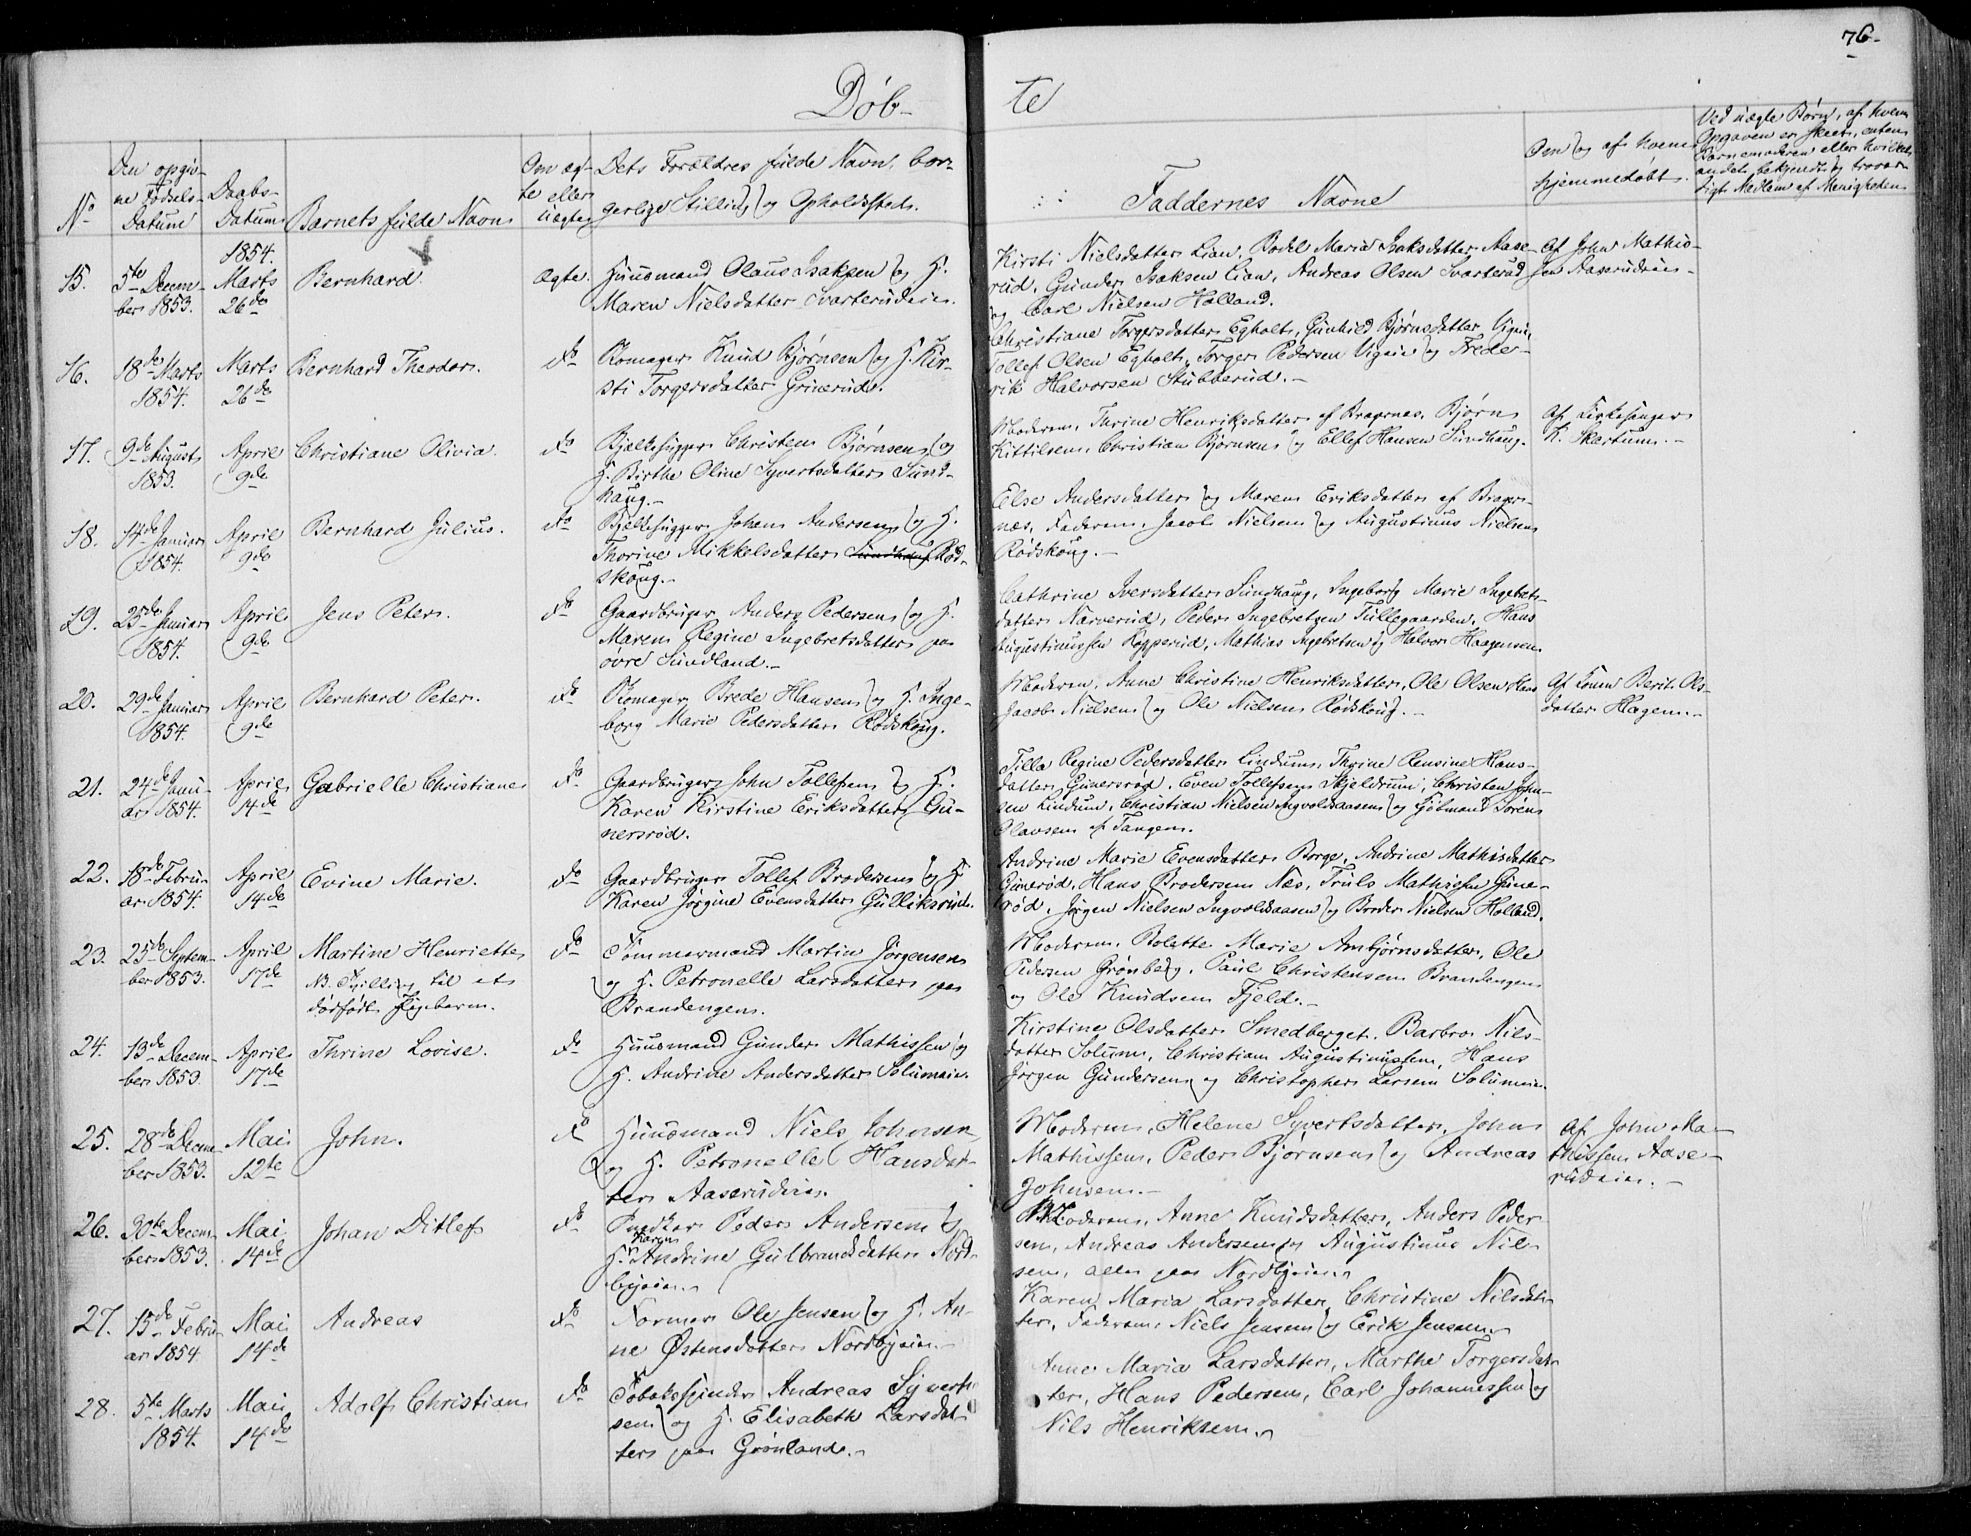 76.
Døb-
te
No
Den opgiv-
ne Fødsels-
Datum
Daabs-
Datum
Barnets fulde Navn
Om æg-
te eller
uægte
Dets Forældres fulde Navn, bor-
gerlige Stilling og Opholdssted.
Faddernes Navne
Om og af hvem
hjemmedøbt.
Ved uægte Børn, af hvem
Opgaven er skeet, enten
Barnemoderen eller hvilket
andet bekjendt og trovær-
digt Medlem af Menigheden
15.
5te Decem-
ber 1853.
1854.
Marts
26de
Bernhard.
Ægte.
Huusmand Olaus Isaksen og H.
Maren Nielsdatter Svarterudeie.
Kirsti Nielsdatter Lian, Bodil Maria Isaksdatter Aase-
rud, Gunder Isaksen Lian, Andreas Olsen Svarterud
og Carl Nielsen Holland.
Af John Mathis-
sen Aaserudeie-
16.
18de Marts
1854.
Marts
26de
Bernhard Theodor.
do
Skomager Knud Bjørnsen og H. Kir-
sti Torgersdatter Grinerud.
Christiane Torgersdatter Egholt, Gunhild Bjørnsdatter Vigeie,
Tollef Olsen Egholt, Torger Pedersen Vigeie og Freder-
rik Halvorsen Stubberud.-
17.
9de August
1853.
April
9de
Christiane Olivia.
do
Bjelkehugger Christen Bjørnsen og
H. Birthe Oline Syvertsdatter Sund-
haug.-
Moderen, Thrine Henriksdatter af Bragernes, Bjørn
Kittilsen, Christian Bjørnsen og Ellef Hansen Sundhaug.
Af Kirkesanger
K. Skertum.-
18.
14de Januar
1854.
April
9de
Bernhard Julius.
do
Bjelkehugger Johan Andersen og H.
Thorine Mikkelsdatter Sundhaug Rød-
skoug.-
Else Andersdatter og Maren Eriksdatter af Brager-
nes, Faderen, Jacob Nielsen og Augustinus Nielsen
Rødskoug.-
19.
25de Januar
1854.
April
9de
Jens Peter.
do
Gaardbruger Anders Pedersen og H.
Maren Regine Ingebretsdatter paa
øvre Sundland.-
Cathrine Iversdatter Sundhaug, Ingeborg Marie Ingebrets-
datter Narverud, Peder Ingebretsen Tuflegaarden, Hans
Augustinussen Kopperud, Mathias Ingebretsen og Halvor Haagensen
20.
29de Januar
1854.
April
9de
Bernhard Peter.
do
Skomager Brede Hansen og H. Inge-
borg Marie Pedersdatter Rødskoug.
Moderen, Anne Christine Henriksdatter, Ole Olsen Hans
Jacob Nielsen og Ole Nielsen Rødskoug.-
Af Konen Berit Ols-
datter Hagen.-
21.
24de Janu-
ar 1854.
April
14de
Gabrielle Christiane
do
Gaardbruger John Tollefsen og H.
Karen Kirstine Eriksdatter Gu-
nersrød.
Tilla Regine Pedersdatter Lindum, Thrine Rensine Hans-
datter Gunersrød, Even Tollefsen Skjeldrum, Christen John-
sen Lindum, Christian Nielsen Ingvoldsaasen og Sømand Søren
Olavsen af Tangen.
22.
18de Febru-
ar 1854.
April
14de
Evine Marie.
do
Gaardbruger Tollef Brodersen og H.
Karen Jørgine Evensdatter Gulliksrud.
Andrine Marie Evensdatter Borge, Andrine Mathisdatter
Gunerød, Hans Brodersen Næs, Truls Mathisen Gune-
rød, Jørgen Nielsen Ingvoldsaasen og Broder Nielsen Holland.
23.
25de Septem-
ber 1853.
April
17de
Martine Henriette
NB. Tvilling til et
dødfødt Pigebarn.
do
Tømmermand Martin Jørgensen
og H. Petronelle Larsdatter paa
Brandengen.
Moderen, Bolette Marie Ambjørnsdatter, Ole
Pedersen Grønberg, Paul Christensen Brandengen
og Ole Knudsen Fjeld.-
24.
13de Decem-
ber 1853.
April
17de
Thrine Lovise.
do
Huusmand Gunder Mathissen og
H. Andrine Andersdatter Solumeie.
Kirstine Olsdatter Smedberget, Barbro Nils-
datter Solum, Christian Augustinussen, Hans
Jørgen Gundersen og Christopher Larsen Solumeie.
25.
28de Decem-
ber 1853.
Mai
12te
John.
do
Huusmand Niels Johnsen
og H. Petronelle Hansdat-
ter Aaserudeie.
Moderen, Helene Syvertsdatter, John
Mathissen, Peder Bjørnsen og Andreas
Johnsen.-
Af John Ma-
thissen Aase-
rudeie.-
26.
30te Decem-
ber 1853.
Mai
14de
Johan Ditlef
do
Snedker Peder Andersen og
Karen
H. Andrine Gulbrandsdatter Nord-
byeie.
Moderen, Anne Knudsdatter, Anders Peder-
sen, Andreas Andersen og Augustinus Nil-
sen, alle paa Nordbyeie.
27.
15de Febru-
ar 1854.
Mai
14de
Andreas
do
Former Ole Jensen og H. An-
ne Østensdatter Nordbyeie.-
Karen Maria Larsdatter, Christine Nilsdat-
ter, Faderen, Niels Jensen og Erik Jensen.
28.
5te Marts
1854.
Mai
14de
Adolf Christian
do
Tobaksspinder Andreas Syvert-
sen og H. Elisabeth Larsdat-
ter paa Grønland.-
Anne Maria Larsdatter, Marthe Torgersdat-
ter, Hans Pedersen, Carl Johannessen og
Nils Henriksen.